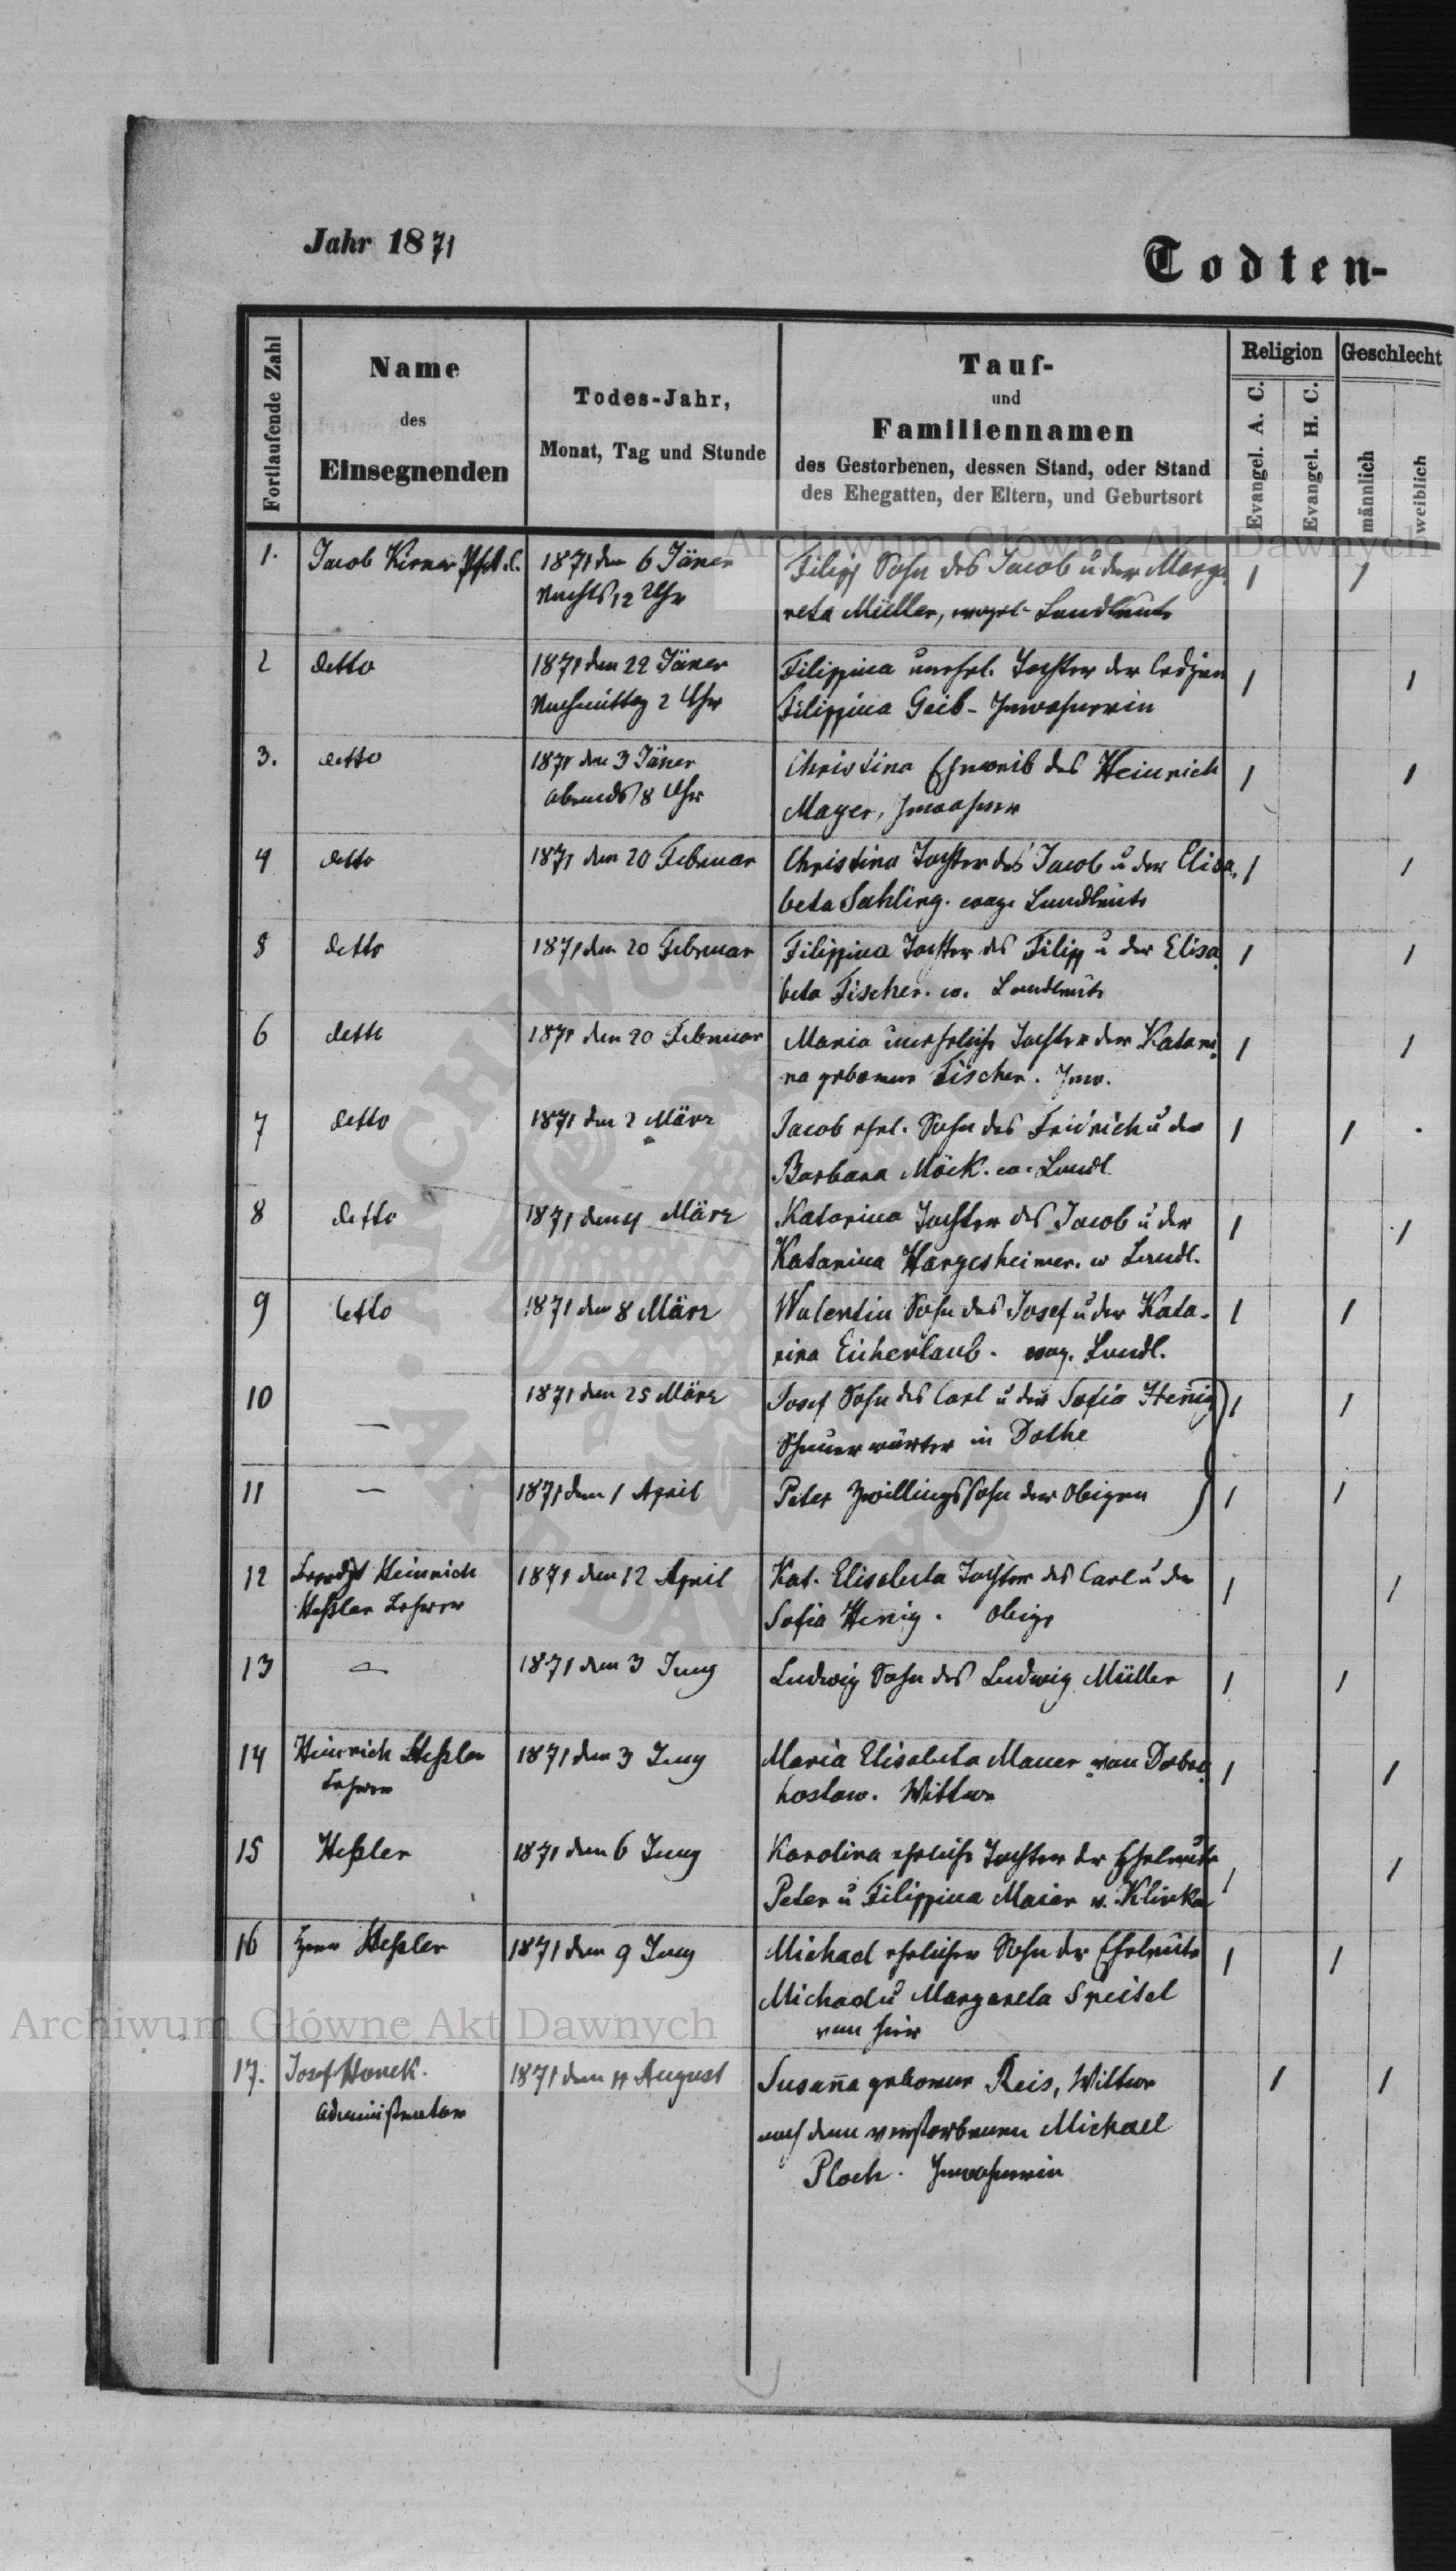 Jahr 1871
Todten-
Fortlaufende Zahl
Name
des
Einsegnenden
Todes-Jahr,
Monat, Tag und Stunde
Tauf-
und
Familiennamen
des Gestorbenen, dessen Stand, oder Stand
des Ehegatten, der Eltern, und Geburtsort
Religion
Evangel. A. C.
Evangel. H. C.
Geschlecht
männlich
weiblich
1. Jacob Kerner 1871 den 6 Jäner Filipp Sohn des Jacob u der Marga- 1 1
Nachts 12 Uhr reta Müller, Landleute
2 detto 1871 den 22 Jäner Filippina unehel. Tochter der ledigen 1 1
Nachmittag 2 Uhr Filippina Geib - Inwohnerin
3. detto 1871 den 3 Jäner Christina Eheweib des Heinrich 1 1
abends 8 Uhr Mayer, Inwohner
4 detto 1871 den 20 Februar Christina Tochter des Jacob u der Elisa- 1 1
beta Sahling. Landleute
5 detto 1871 den 20 Februar Filippina Tochter des Filipp u der Elisa 1 1
beta Fischer. Landleute
6 detto 1871 den 20 Februar Maria uneheliche Tochter der Katari 1 1
na geborenen Fischer. Inw.
7 detto 1871 den 2 März Jacob ehel. Sohn des Fridrich u der 1 1
Barbara Möck. Landl.
8 detto 1871 den 4 März Katarina Tochter des Jacob u der 1 1
Katarina Hargesheimer. Landl.
9 detto 1871 den 8 März Walentin Sohn des Josef u der Kata- 1 1
rina Eicherlaub. Landl.
10 — 1871 den 25 März Josef Sohn des Carl u der Sofia Hennig 1 1
in
11 — 1871 den 1 April Peter Zwillingssohn der Obigen 1 1
12 Heinrich 1871 den 12 April Kat. Elisabeta Tochter des Carl u der 1 1
Heßler Lehrer Sofia Hennig. Obige
13 — 1871 den 3 Juny Ludwig Sohn des Ludwig Müller 1 1
14 Heinrich Heßler 1871 den 3 Juny Maria Elisabeta Mauer von Dobro 1 1
Lehrer hostow. Wittwe
15 Heßler 1871 den 6 Juny Karolina eheliche Tochter der Eheleute 1 1
Peter u Filippina Maier
16 Herr Heßler 1871 den 9 Juny Michael ehelicher Sohn der Eheleute 1 1
Michael u Margareta Speitel
von hier
17. Josef Honek. 1871 den August Susanna geborene Reis, Wittwe 1 1
Administrator nach dem verstorbenen Michael
Ploch. Inwohnerin
Archiwum Główne Akt Dawnych
Archiwum Główne Akt Dawnych
ARCHIWUM
AKT DAWNYCH